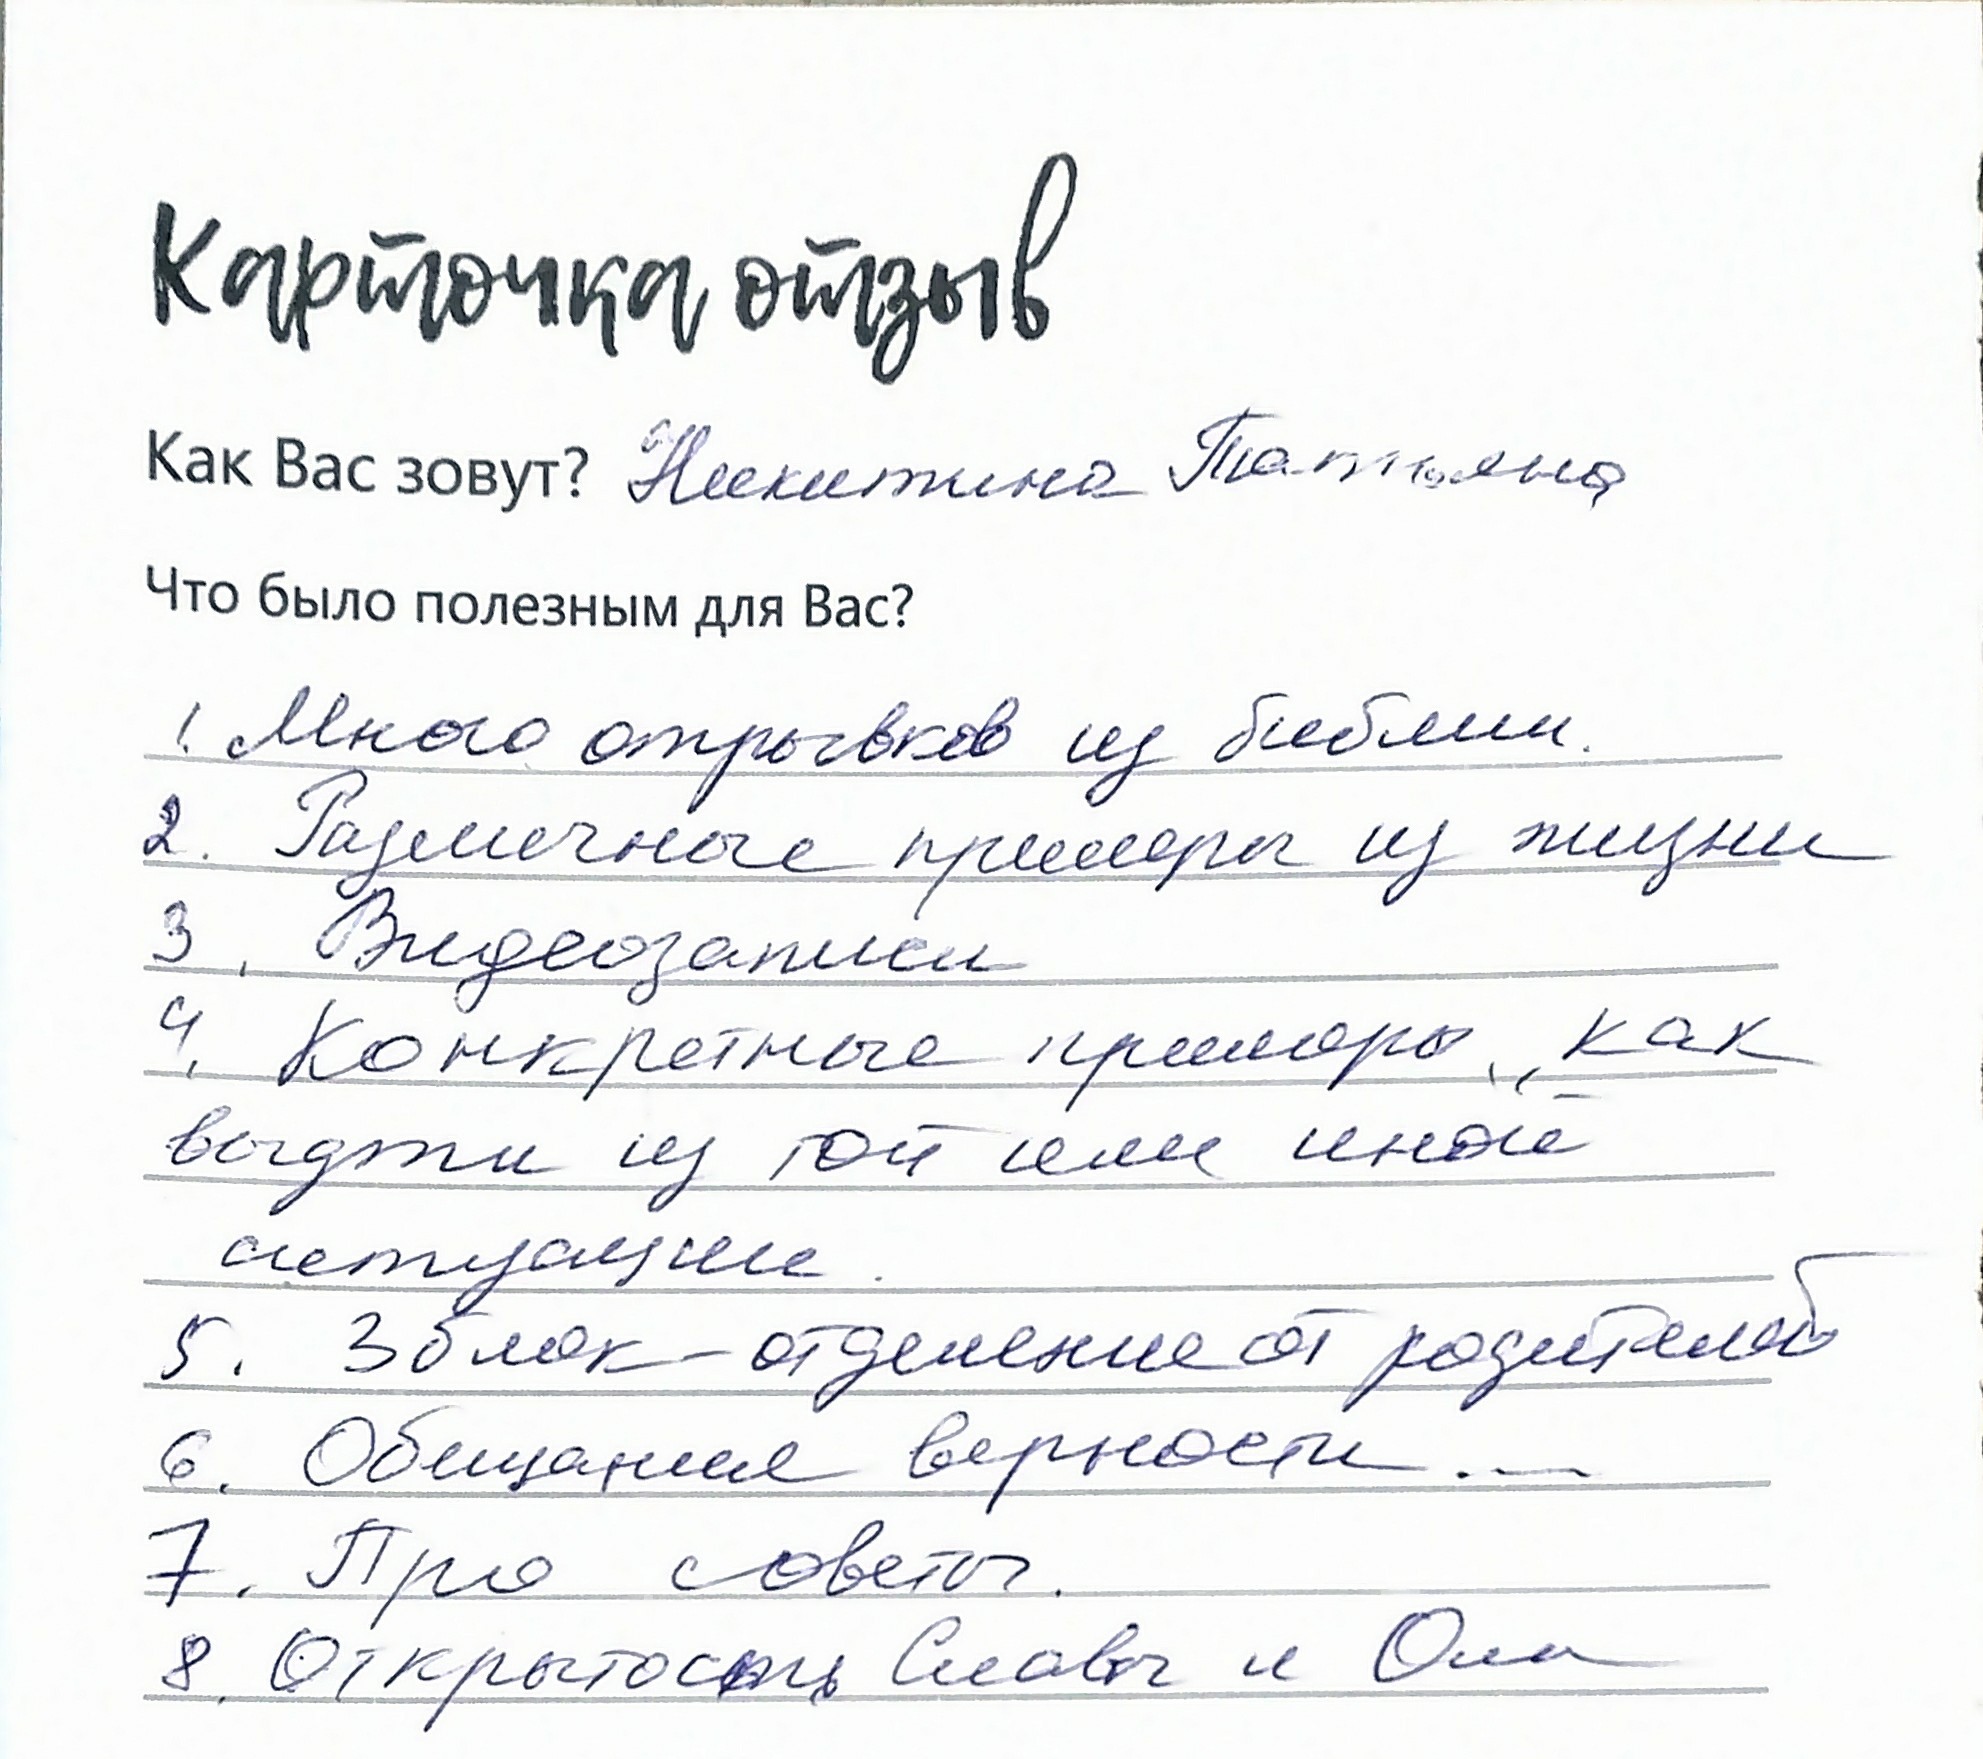 Карточка отзыв
Как Вас зовут? Никитина Татьяна
Что было полезным для Вас?
1. Много отрывков из библии.
2. Различные примеры из жизни
3. Видеозаписи
4. Конкретные примеры, как
выдти из той или иной
ситуации.
5. 3 блок - отделение от родителей
6. Обещание верности...
7. Про советы.
8. Открытость Славы и Оли